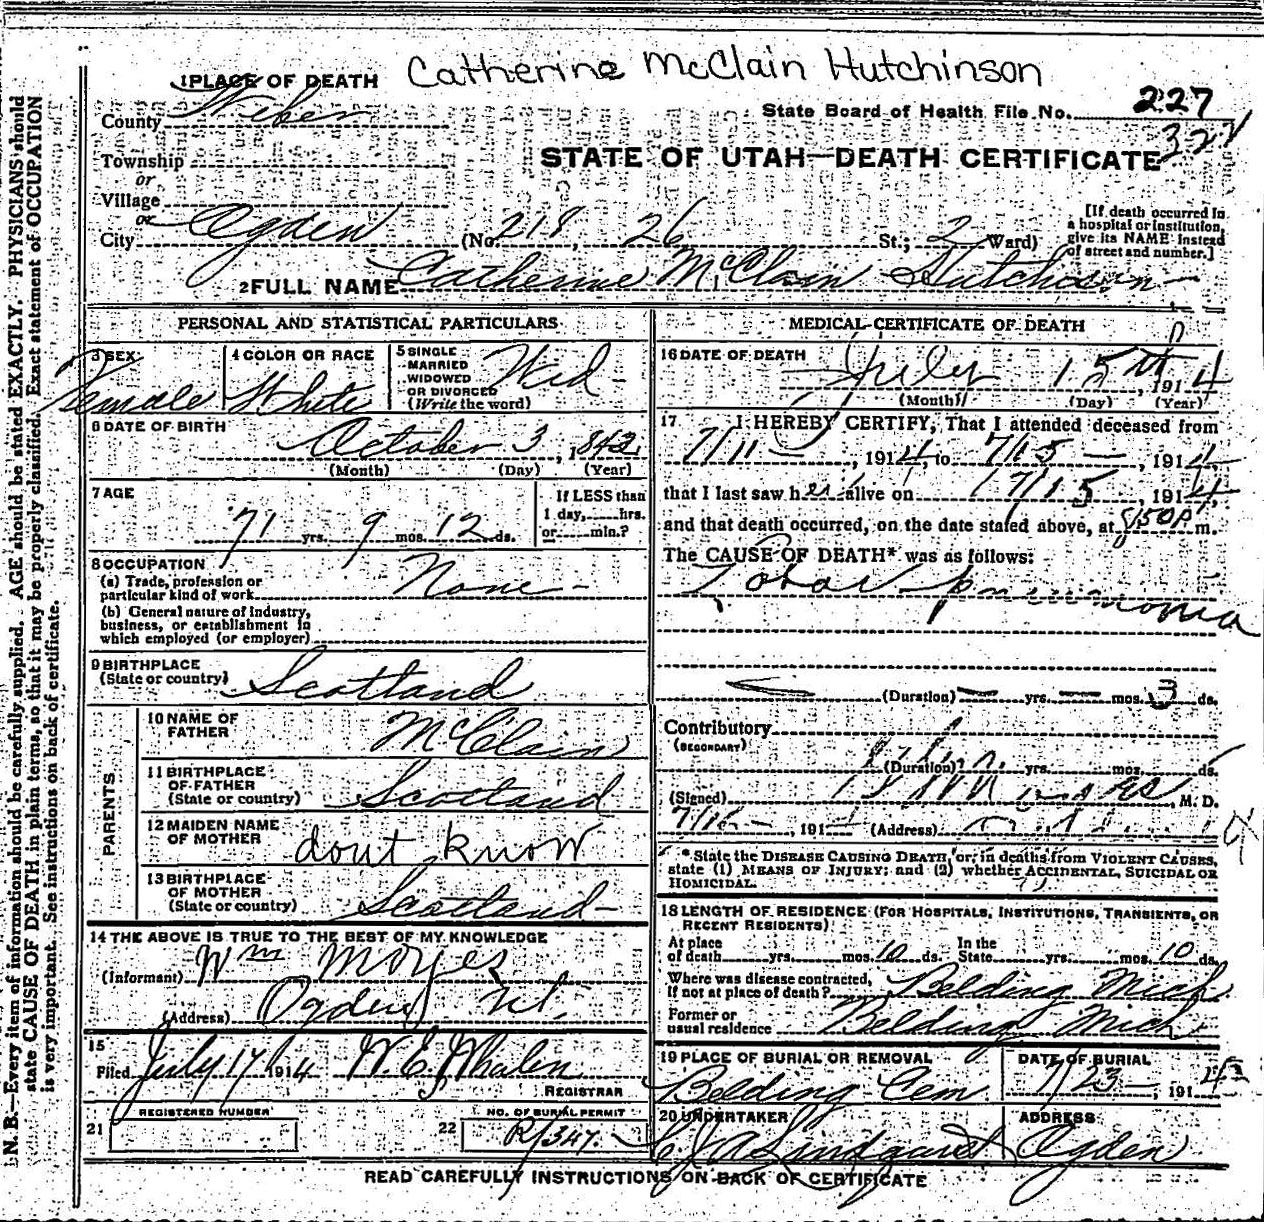 Catherine McClain Hutchinson
1 PLACE OF DEATH
County Weber
State Board of Health File No. 227
327
Township
or
Village
or
City Ogden (No. 218, 26 St.; 2 Ward)
STATE OF UTAH—DEATH CERTIFICATE
[If death occurred in
a hospital or institution,
give its NAME instead
of street and number.]
2 FULL NAME Catherine McClain Hutchison
PERSONAL AND STATISTICAL PARTICULARS
3 SEX
Female
4 COLOR OR RACE
White
5 SINGLE
MARRIED
WIDOWED
OR DIVORCED
(Write the word)
Wid
6 DATE OF BIRTH
October 3, 1842
(Month) (Day) (Year)
7 AGE
71 yrs. 9 mos. 12 ds.
If LESS than
1 day, hrs.
or min.?
8 OCCUPATION
(a) Trade, profession or
particular kind of work None
(b) General nature of industry,
business, or establishment in
which employed (or employer)
9 BIRTHPLACE
(State or country) Scotland
PARENTS
10 NAME OF
FATHER McClain
11 BIRTHPLACE
OF FATHER
(State or country) Scotland
12 MAIDEN NAME
OF MOTHER dont know
13 BIRTHPLACE
OF MOTHER
(State or country) Scotland
14 THE ABOVE IS TRUE TO THE BEST OF MY KNOWLEDGE
(Informant) Wm Moyes
(Address) Ogden Ut.
15
Filed July 17 1914 W. E. Whalen
REGISTRAR
REGISTERED NUMBER
21
NO. OF BURIAL PERMIT
22 R/347.
MEDICAL CERTIFICATE OF DEATH
16 DATE OF DEATH
July 15th, 1914
(Month) (Day) (Year)
17 I HEREBY CERTIFY, That I attended deceased from
7/11, 1914, to 7/15, 1914,
that I last saw her alive on 7/15, 1914,
and that death occurred, on the date stated above, at 8:50 P. m.
The CAUSE OF DEATH* was as follows:
Lobar pneumonia
(Duration) yrs. mos. 3 ds.
Contributory
(SECONDARY)
(Duration) yrs. mos. ds.
(Signed) M. D.
7/16, 191 (Address)
*State the DISEASE CAUSING DEATH, or, in deaths from VIOLENT CAUSES,
state (1) MEANS OF INJURY; and (2) whether ACCIDENTAL, SUICIDAL OR
HOMICIDAL.
18 LENGTH OF RESIDENCE (FOR HOSPITALS, INSTITUTIONS, TRANSIENTS, OR
RECENT RESIDENTS)
At place
of death yrs. mos. 10 ds.
In the
State yrs. mos. 10 ds.
Where was disease contracted,
if not at place of death? Belding Mich
Former or
usual residence Belding Mich
19 PLACE OF BURIAL OR REMOVAL
Belding Cem
DATE OF BURIAL
7/23, 1914
20 UNDERTAKER
C J A Lindquist
ADDRESS
Ogden
READ CAREFULLY INSTRUCTIONS ON BACK OF CERTIFICATE
N. B.—Every item of information should be carefully supplied. AGE should be stated EXACTLY. PHYSICIANS should
state CAUSE OF DEATH in plain terms, so that it may be properly classified. Exact statement of OCCUPATION
is very important. See instructions on back of certificate.